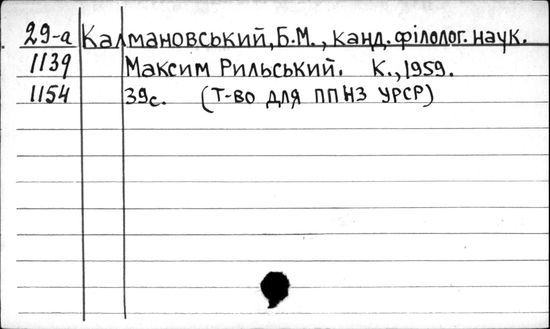 29-а Калмановський, Б.М., канд. філолог. наук.
1139 Максим Рильський. К., 1959.
1154 39с. (Т-во для ППНЗ УРСР)